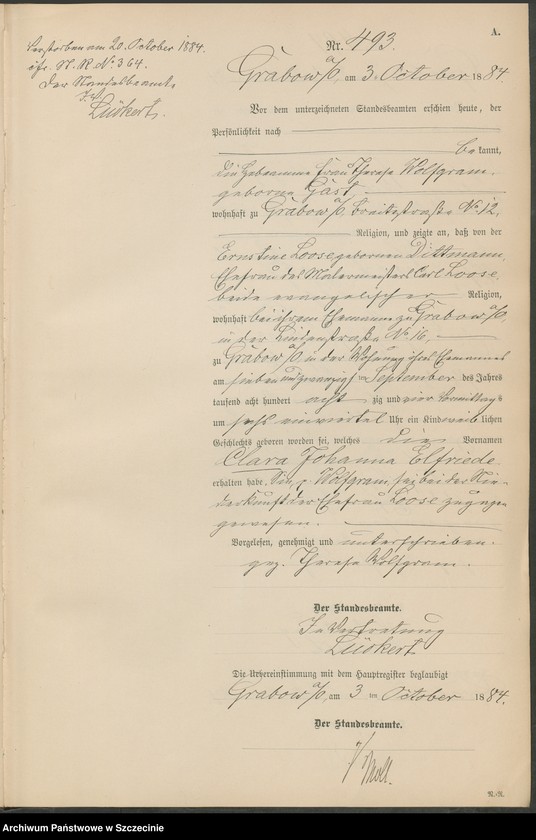 A.
Verstorben am 20. October 1884.
cfr. St. R. No 364.
Der Standesbeamte
Lückert.
Nr. 493.
Grabow a/O, am 3. October 1884.
Vor dem unterzeichneten Standesbeamten erschien heute, der
Persönlichkeit nach
bekannt,
die Hebeamme Frau Therese Wolfgram,
geborne Gast
wohnhaft zu Grabow a/O, Breitestraße No 12,
Religion, und zeigte an, daß von der
Ernstine Loose gebornen Dittmann,
Ehefrau des Malermeisters Carl Loose,
beide evangelischer Religion,
wohnhaft bei ihrem Ehemanne zu Grabow a/O,
in der Lindenstraße No 16,
zu Grabow a/O in der Wohnung ihres Ehemannes
am sieben und zwanzigsten September des Jahres
tausend acht hundert achtzig und vier Vormittags
um sechs einviertel Uhr ein Kind weiblichen
Geschlechts geboren worden sei, welches die Vornamen
Clara Johanna Elfriede
erhalten habe. Sie, p. Wolfgram sei bei der Nie-
derkunft der Ehefrau Loose zugegen
gewesen.
Vorgelesen, genehmigt und unterschrieben.
gez. Therese Wolfgram.
Der Standesbeamte.
In Vertretung
Lückert
Die Übereinstimmung mit dem Hauptregister beglaubigt
Grabow a/O, am 3 ten October 1884.
Der Standesbeamte.
N.-R.
Archiwum Państwowe w Szczecinie